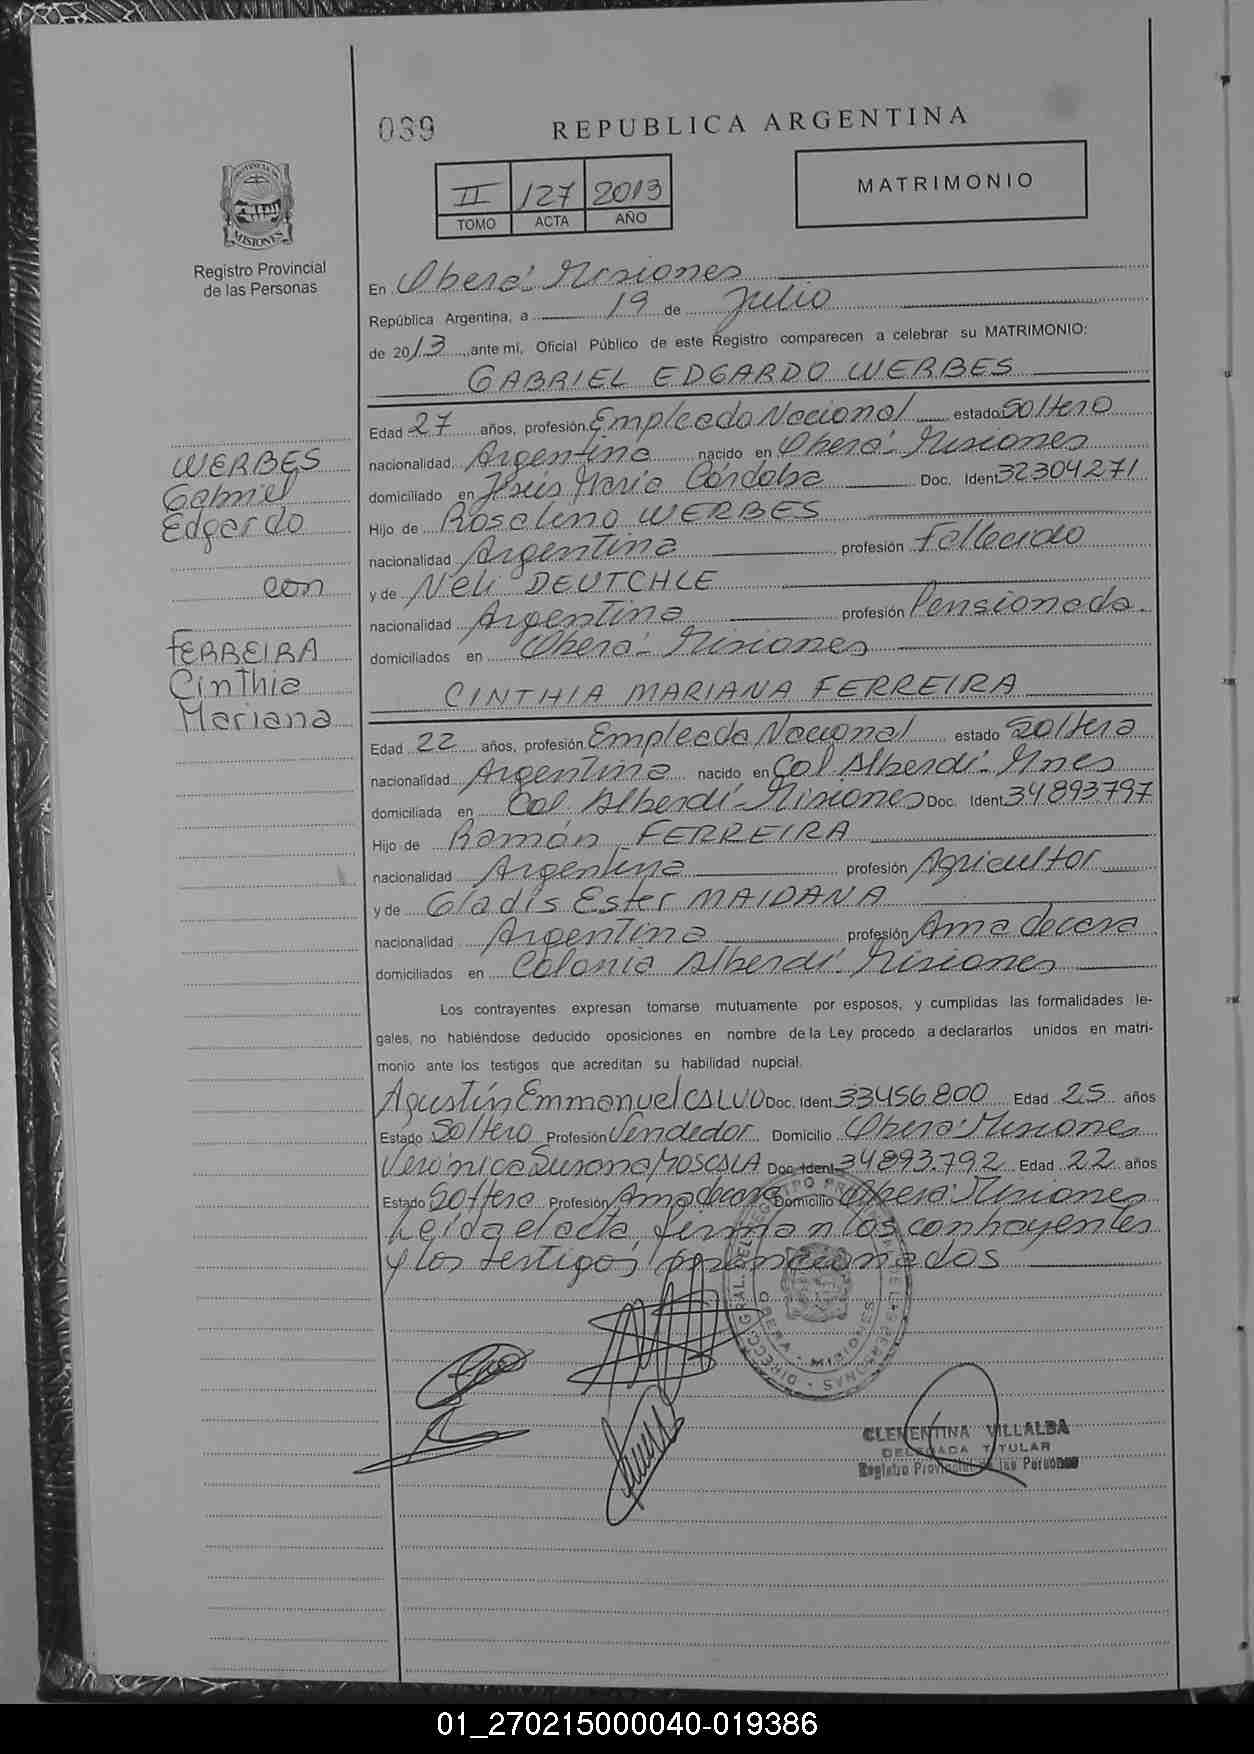 039
REPUBLICA ARGENTINA
II 127 2013
TOMO ACTA AÑO
MATRIMONIO
PROVINCIA DE
MISIONES
Registro Provincial
de las Personas
En Oberá - Misiones
República Argentina, a 19 de Julio
de 2013, ante mi, Oficial Público de este Registro comparecen a celebrar su MATRIMONIO:
GABRIEL EDGARDO WERBES
Edad 27 años, profesión Empleado Nacional estado Soltero
nacionalidad Argentina nacido en Oberá - Misiones
domiciliado en Jesús María Córdoba Doc. Ident 32304271
Hijo de Rosalino WERBES
nacionalidad Argentina profesión Fallecido
y de Neli DEUTCHLE
nacionalidad Argentina profesión Pensionada.
domiciliados en Oberá - Misiones
CINTHIA MARIANA FERREIRA
Edad 22 años, profesión Empleada Nacional estado Soltera
nacionalidad Argentina nacido en Col Alberdi - Mnes
domiciliada en Col. Alberdi - Misiones Doc. Ident 34893797
Hijo de Ramón FERREIRA
nacionalidad Argentina profesión Agricultor
y de Gladis Ester MAIDANA
nacionalidad Argentina profesión Ama de casa
domiciliados en Colonia Alberdi - Misiones
WERBES
Gabriel
Edgardo
con
FERREIRA
Cinthia
Mariana
Los contrayentes expresan tomarse mutuamente por esposos, y cumplidas las formalidades le-
gales, no habiéndose deducido oposiciones en nombre de la Ley procedo a declararlos unidos en matri-
monio ante los testigos que acreditan su habilidad nupcial.
Agustín Emmanuel CALVO Doc. Ident 33456.800 Edad 25 años
Estado Soltero Profesión Vendedor Domicilio Oberá - Misiones
Verónica Susana Doc. Ident 34893.792 Edad 22 años
Estado Soltera Profesión Ama de casa Domicilio Oberá - Misiones
Leída el acta, firman los contrayentes
y los testigos mencionados
DIRECC. GRAL. DEL REGISTRO PROVINCIAL DE LAS PERSONAS
OBERA - MISIONES
CLEMENTINA VILLALBA
DELEGADA TITULAR
Registro Provincial de las Personas
01_270215000040-019386